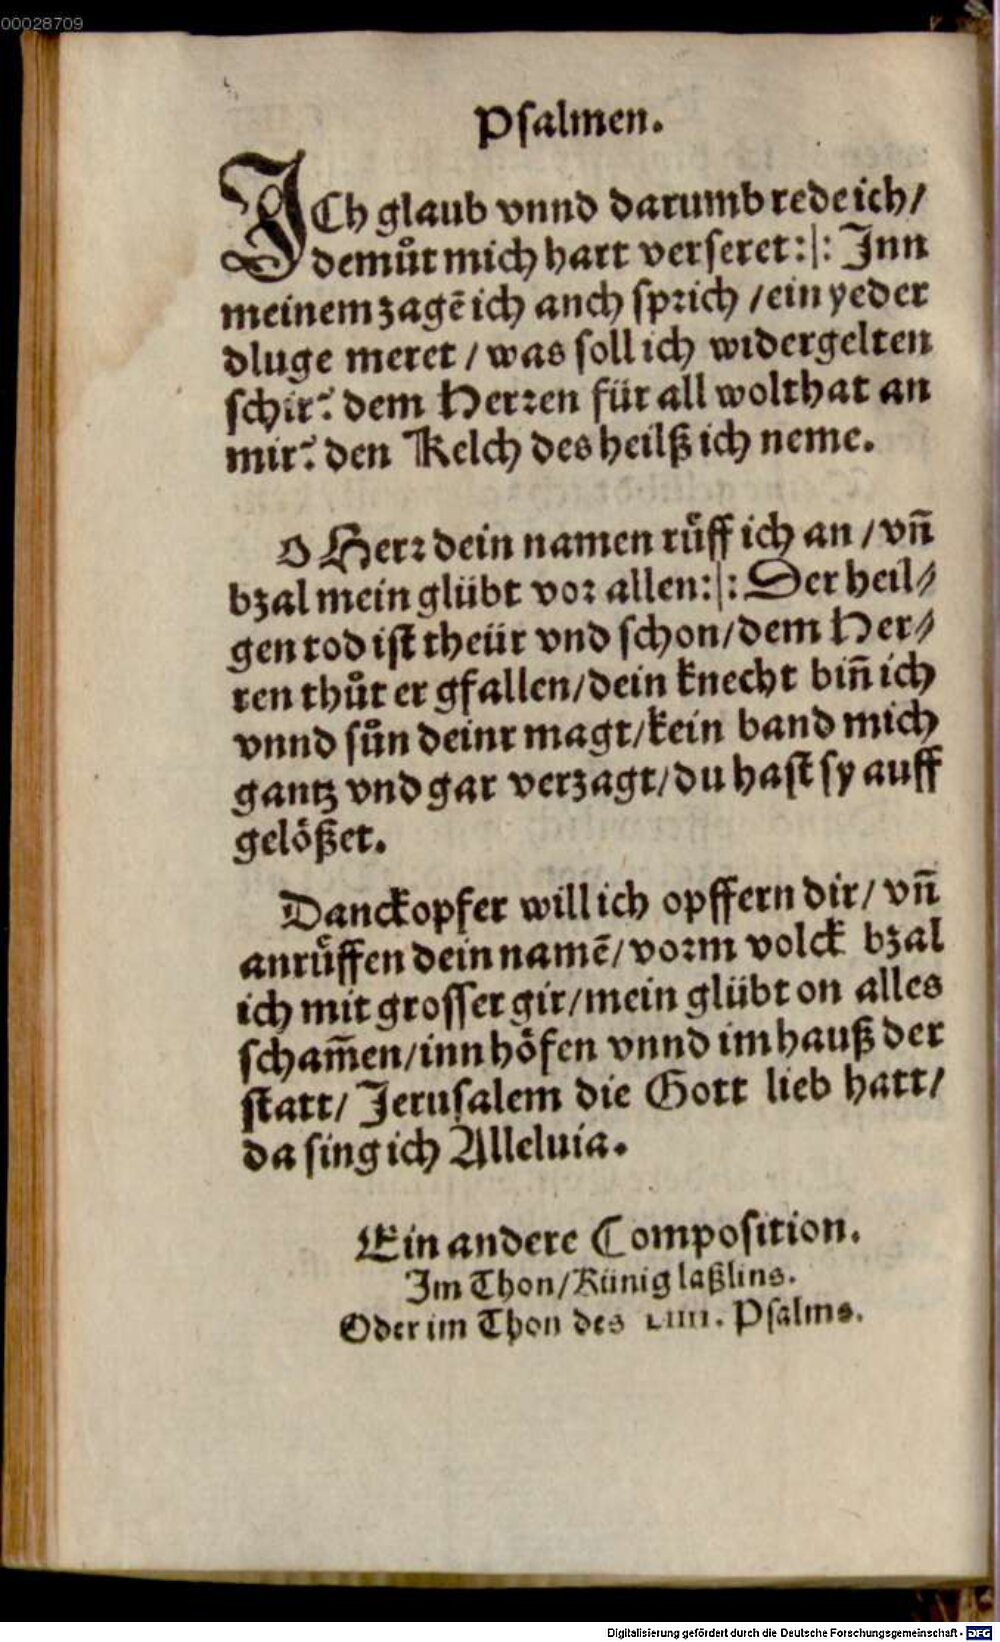 00028709
Psalmen.
ICh glaub vnnd darumb rede ich/
demuͦt mich hart verseret:|: Inn
meinem zagē ich anch sprich /ein yeder
dluge meret / was soll ich widergelten
schir? dem Herren für all wolthat an
mir? den Kelch des heilß ich neme.
O Herr dein namen ruͤff ich an / vn̄
bzal mein glübt vor allen:|: Der heil⸗
gen tod ist theür vnd schon/dem Her⸗
ren thuͦt er gfallen/dein knecht bin̄ ich
vnnd suͦn deinr magt/kein band mich
gantz vnd gar verzagt/du hast sy auff
gelößet.
Danckopfer will ich opffern dir/ vn̄
anruͤffen dein namē/vorm volck bzal
ich mit grosser gir/mein glübt on alles
scham̄en/inn höfen vnnd im hauß der
statt/ Jerusalem die Gott lieb hatt/
da sing ich Alleluia.
Ein andere Composition.
Im Thon/Künig laßlins.
Oder im Thon des LIIII. Psalms.
Digitalisierung gefördert durch die Deutsche Forschungsgemeinschaft - DFG